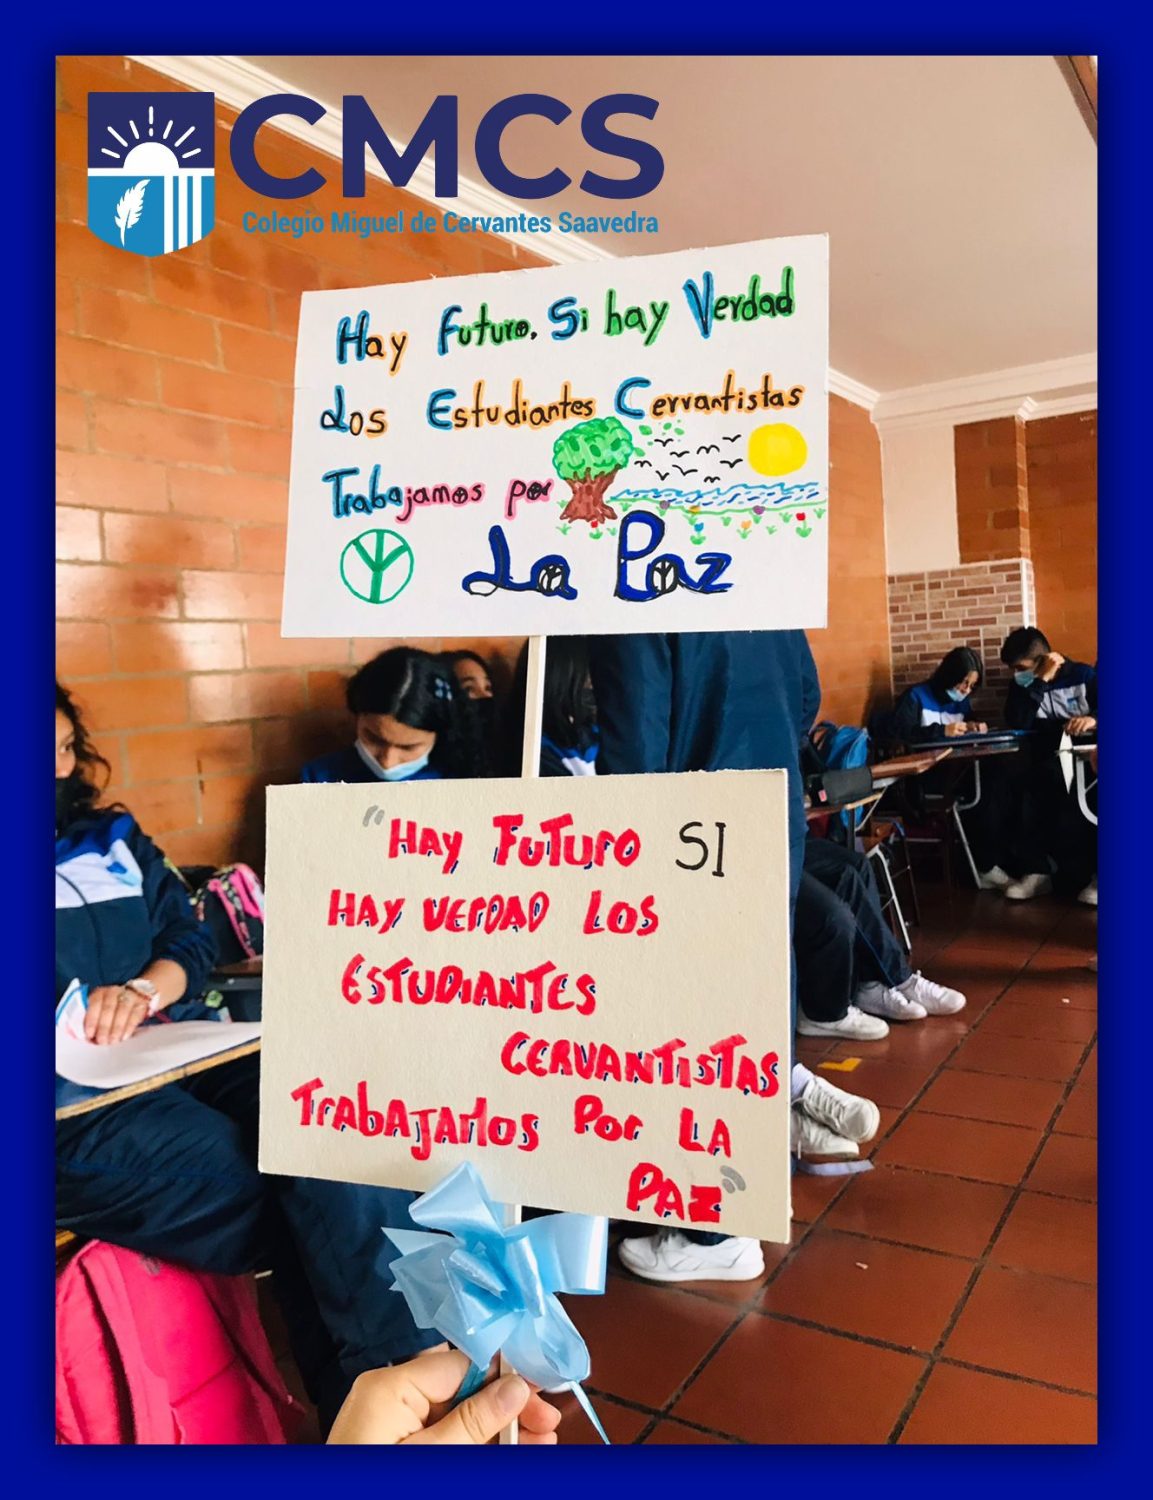 CMCS
Colegio Miguel de Cervantes Saavedra
Hay Futuro. Si hay Verdad
Los Estudiantes Cervantistas
Trabajamos por
La Paz
"HAY FUTURO SI
HAY VERDAD LOS
ESTUDIANTES
CERVANTISTAS
TrabAJAMOS Por LA
PAZ"